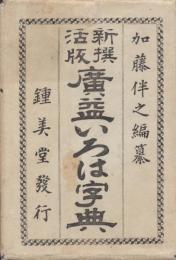 加藤伴之編纂
新撰
活版
廣益いろは字典
鍾美堂發行